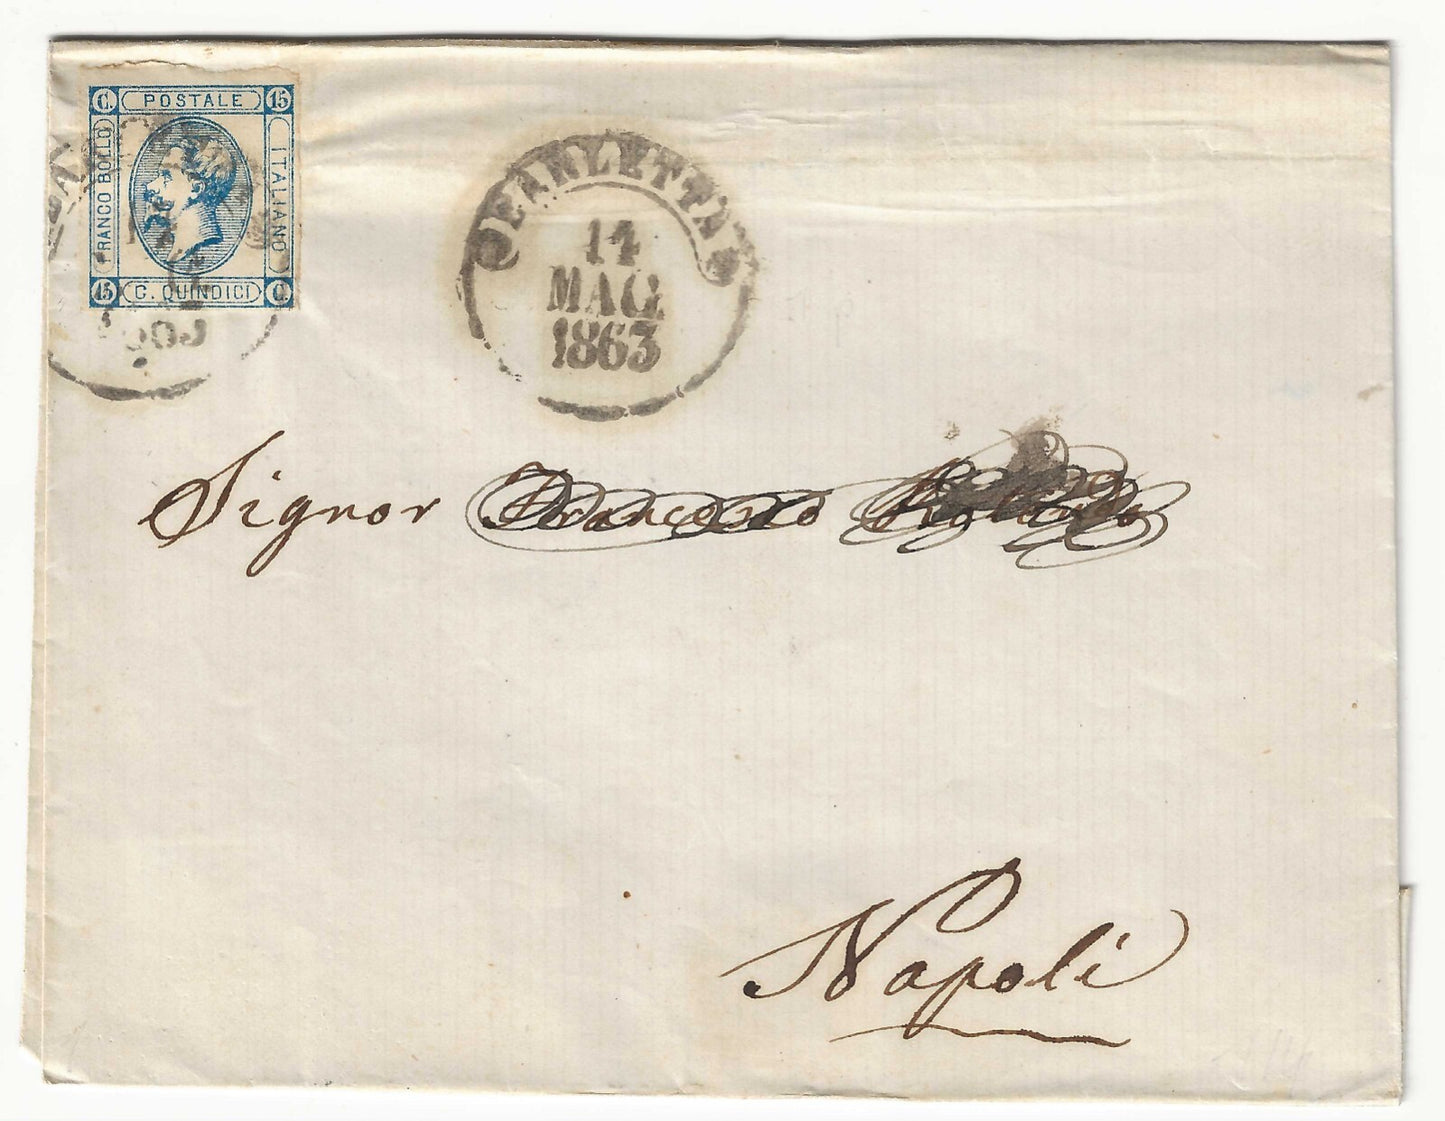 C. POSTALE 15
FRANCO BOLLO
ITALIANO
15 C. QUINDICI C.
BARLETTA
14
MAG
1863
Signor Francesco
Napoli